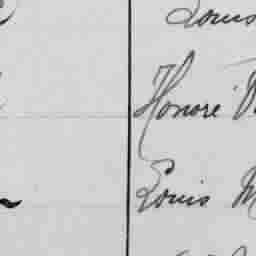 Louis
Honoré
Louis M